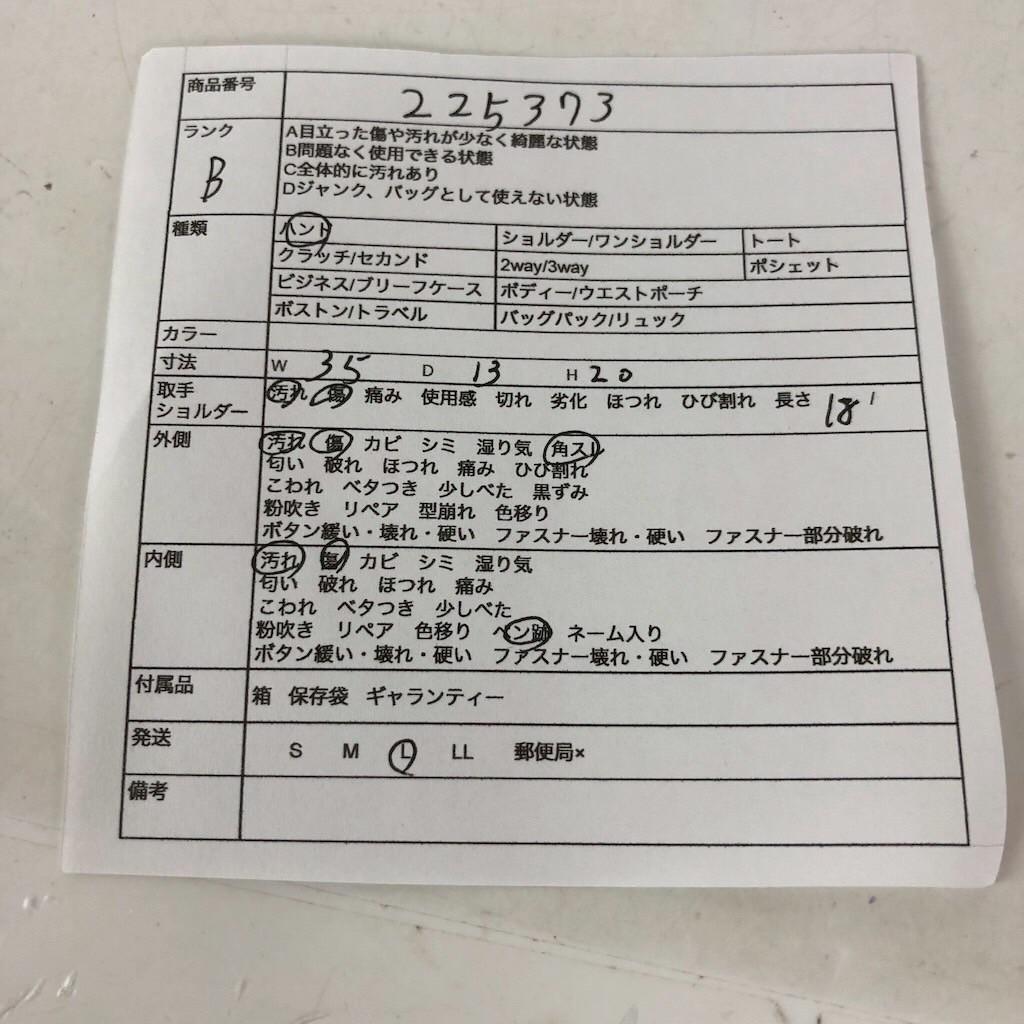 商品番号 225373
ランク B
A目立った傷や汚れが少なく綺麗な状態
B問題なく使用できる状態
C全体的に汚れあり
Dジャンク、バッグとして使えない状態
種類 ハンド ショルダー/ワンショルダー トート
クラッチ/セカンド 2way/3way ポシェット
ビジネス/ブリーフケース ボディー/ウエストポーチ
ボストン/トラベル バッグパック/リュック
カラー
寸法 W 35 D 13 H 20
取手 汚れ 傷 痛み 使用感 切れ 劣化 ほつれ ひび割れ 長さ 18
ショルダー
外側 汚れ 傷 カビ シミ 湿り気 角スレ
匂い 破れ ほつれ 痛み ひび割れ
こわれ ベタつき 少しべた 黒ずみ
粉吹き リペア 型崩れ 色移り
ボタン緩い・壊れ・硬い ファスナー壊れ・硬い ファスナー部分破れ
内側 汚れ 傷 カビ シミ 湿り気
匂い 破れ ほつれ 痛み
こわれ ベタつき 少しべた
粉吹き リペア 色移り ペン跡 ネーム入り
ボタン緩い・壊れ・硬い ファスナー壊れ・硬い ファスナー部分破れ
付属品 箱 保存袋 ギャランティー
発送 S M L LL 郵便局×
備考